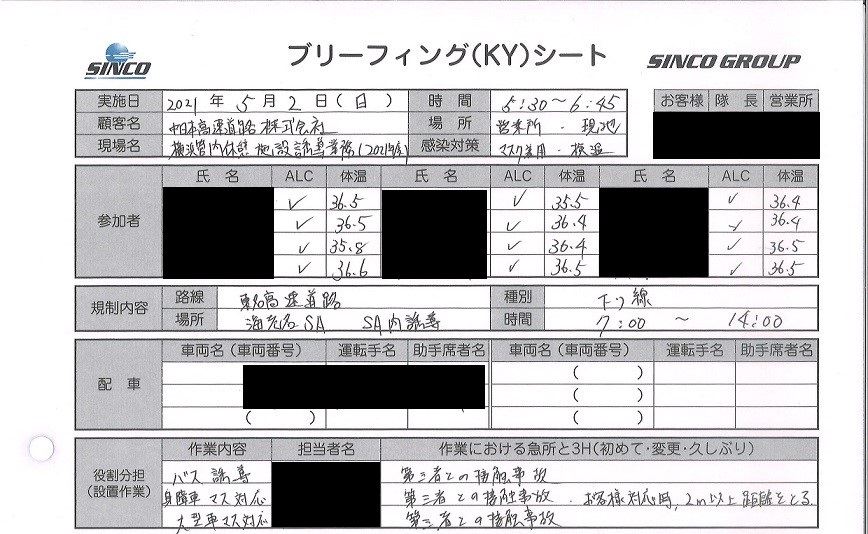 SINCO
ブリーフィング(KY)シート
SINCO GROUP
実施日 2021年 5月 2日(日) 時間 5:30～6:45 お客様 隊長 営業所
顧客名 中日本高速道路 株式会社 場所 営業所・現地
現場名 横浜管内休憩施設誘導業務(2021年度) 感染対策 マスク着用・検温
参加者 氏名 ALC 体温 氏名 ALC 体温 氏名 ALC 体温
✓ 36.5 ✓ 35.5 ✓ 36.4
✓ 36.5 ✓ 36.4 ✓ 36.4
✓ 35.8 ✓ 36.4 ✓ 36.5
✓ 36.6 ✓ 36.5 ✓ 36.5
規制内容 路線 東名高速道路 種別 下り線
場所 海老名SA SA内誘導 時間 7:00 ～ 14:00
配車 車両名(車両番号) 運転手名 助手席者名 車両名(車両番号) 運転手名 助手席者名
( )
( )
( ) ( )
役割分担(設置作業) 作業内容 担当者名 作業における急所と3H(初めて・変更・久しぶり)
バス誘導 第三者との接触事故
身障車マス対応 第三者との接触事故・お客様対応時、2m以上距離をとる
大型車マス対応 第三者との接触事故